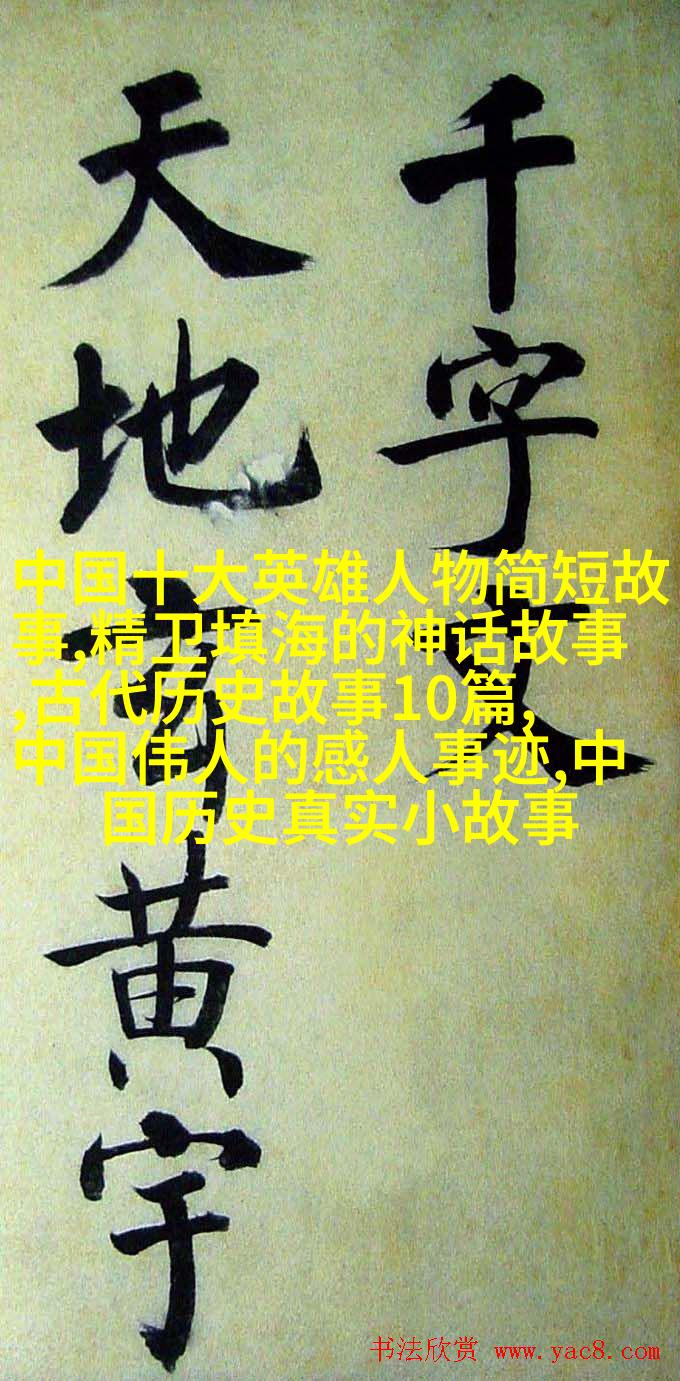 千字文
天地黄宇
中国十大英雄人物简短故
事,精卫填海的神话故事
,古代历史故事10篇,
中国伟人的感人事迹,中
国历史真实小故事
书法欣赏 www.yac8.com